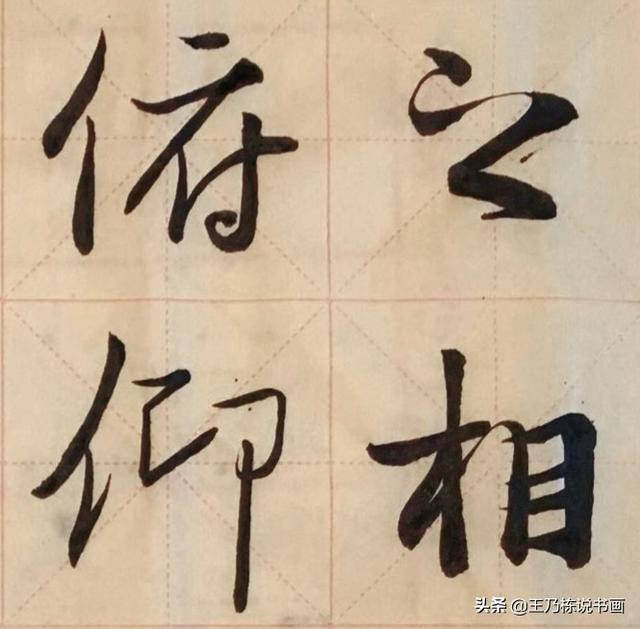 之相
俯仰
头条 @王乃栋说书画